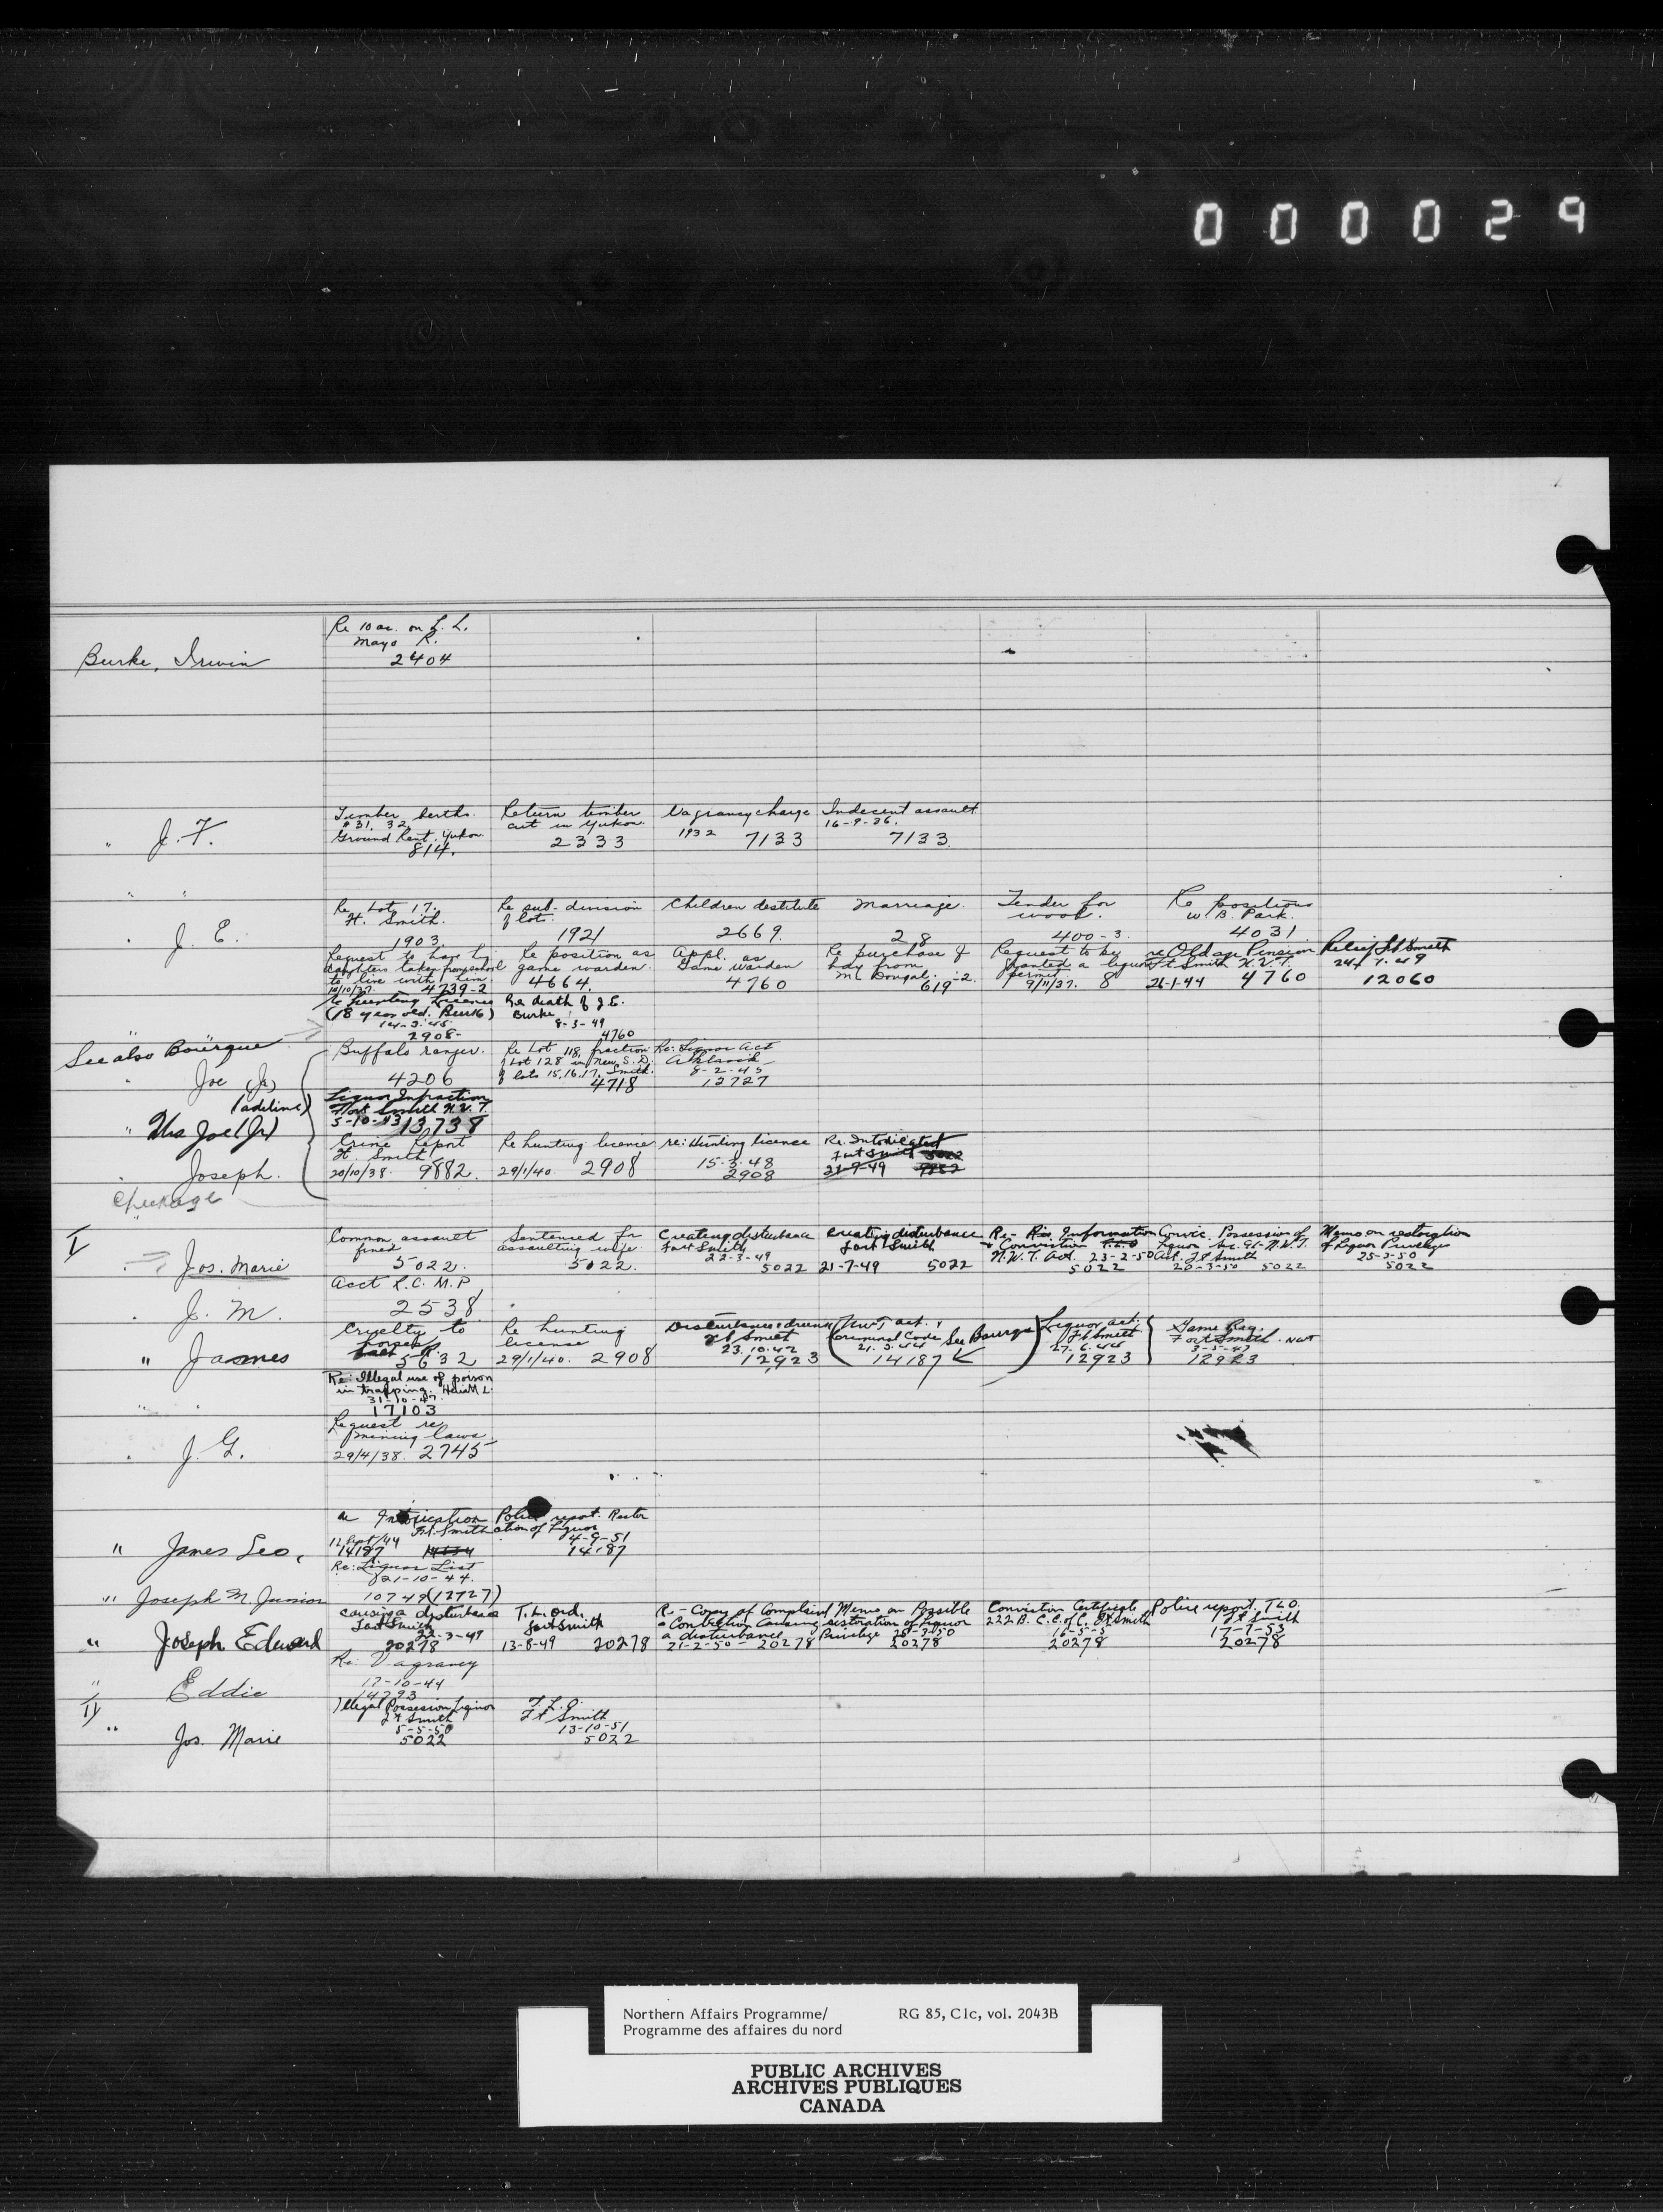 000029
Burke, Irwin
Re 10 ac. on L. L.
Mayo R.
2404
" J. F.
Timber berths.
#31, 32
Ground Rent. Yukon.
814.
Return timber
cut in Yukon.
2333
Vagrancy charge
1932 7133
Indecent assault
16-9-36.
7133.
" "
. J. E.
Re Lot 17.
Ft. Smith.
1903.
Re sub-division
of lot.
1921
Children destitute
2669.
Marriage.
28
Tender for
wood.
400-3.
Re position
W. B. Park.
4031
Request to have his
daughters taken from school
to live with him.
4739-2
Re position as
game warden.
4664.
Appl. as
Game Warden
4760
Re purchase of
from
McDougal.
619-2.
Request to be
granted a liquor
permit.
9/11/37. 8
re Old age Pension
Ft Smith N.W.T.
26-1-44 4760
Relief Ft Smith
24-7-49
12060
re Hunting Licence
(18 year old. Burke)
14-3-45
2908-
Re death of J.E.
Burke
8-3-49
4760
See also Bourque
. Joe (Jr)
Buffalo ranger.
4206
Re Lot 118, fraction
of Lot 128 in new S.D.
of lots 15, 16, 17. Smith.
4718
Re: Liquor Act
8-2-45
12727
(adeline)
" Mrs Joe (Jr)
Liquor Infraction
Fort Smith N.W.T.
5-10-43 13738
. Joseph.
Crime Report
Ft. Smith
20/10/38. 9882.
Re hunting licence
29/1/40. 2908
re: Hunting licence
15-3-48
2908
Re. Intoxicated
Fort Smith 5022
21-7-49 9882
I
. Jos. Marie
Common assault
fined
5022.
Sentenced for
assaulting wife
5022.
Creating disturbance
Fort Smith
22-3-49
5022
Creating disturbance
Fort Smith
21-7-49 5022
Re- Information
& Conviction T.L.O
N.W.T. Act. 23-2-50
5022
Convic. Possession of
Liquor Sec. 91-N.W.T.
Act. Ft Smith
20-3-50 5022
Memo on restoration
of Liquor Privileges
25-3-50
5022
. J. M.
Acct R.C.M.P
2538
" James
Cruelty to
horses
5632
Re hunting
license
29/1/40. 2908
Disturbance & drunk
Ft Smith
23.10.42
12923
(NWT act. &
Criminal Code See Bourge)
21.3.44
14187
Liquor act.
Ft Smith
27.6.44
12923
Game Reg.
Fort Smith. NWT
3-5-47
12923
" "
Re: Illegal use of poison
in trapping. Hair M L.
31-10-47.
17103
. J. G.
Request re
mining laws.
29/4/38. 2745
" James Leo,
Intoxication
Ft. Smith
11 Sept/44
14187
Police report. Restor
ation of Liquor
4-9-51
14187
" Joseph M. Junior
Re: Liquor List
21-10-44.
10749 (12727)
" Joseph Edward
causing a disturbance
Fort Smith
22-3-49
20278
T.L. Ord.
Fort Smith
13-8-49 20278
Re- Copy of Complaint
& Conviction Causing
a disturbance
21-2-50 - 20278
Memo on Possible
restoration of Liquor
Privilege 25-3-50
20278
Conviction Certificate
222 B. C.C. of C. Ft Smith
20278
Police report. T.L.O.
Ft Smith
17-7-53
20278
" Eddie
Re: Vagrancy
17-10-44
14293
II
" Jos. Marie
Illegal Possession Liquor
Ft Smith
5-5-50
5022
T.L.O.
Ft Smith
13-10-51
5022
Northern Affairs Programme/ RG 85, C1c, vol. 2043B
Programme des affaires du nord
PUBLIC ARCHIVES
ARCHIVES PUBLIQUES
CANADA